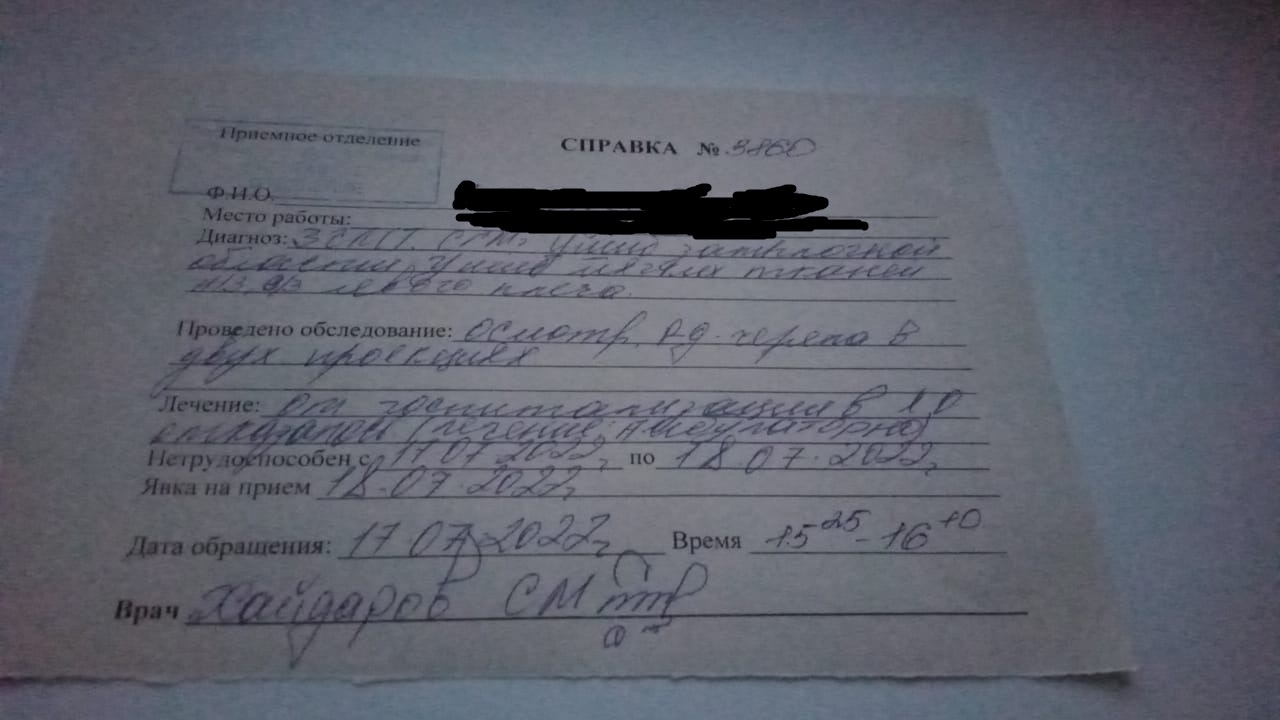 Приемное отделение
СПРАВКА № 3860
Ф.И.О.
Место работы:
Диагноз: ЗЧМТ. СГМ, Ушиб затылочной
области, Ушиб мягких тканей
левого плеча.
Проведено обследование: осмотр, черепа в
двух проекциях
Лечение: от госпитализации в
(лечение амбулаторно)
Нетрудоспособен с 17.07.2022г. по 18.07.2022г.
Явка на прием 18.07.2022г.
Дата обращения: 17.07.2022г. Время 15 25 - 16 10
Врач Хайдаров СМ